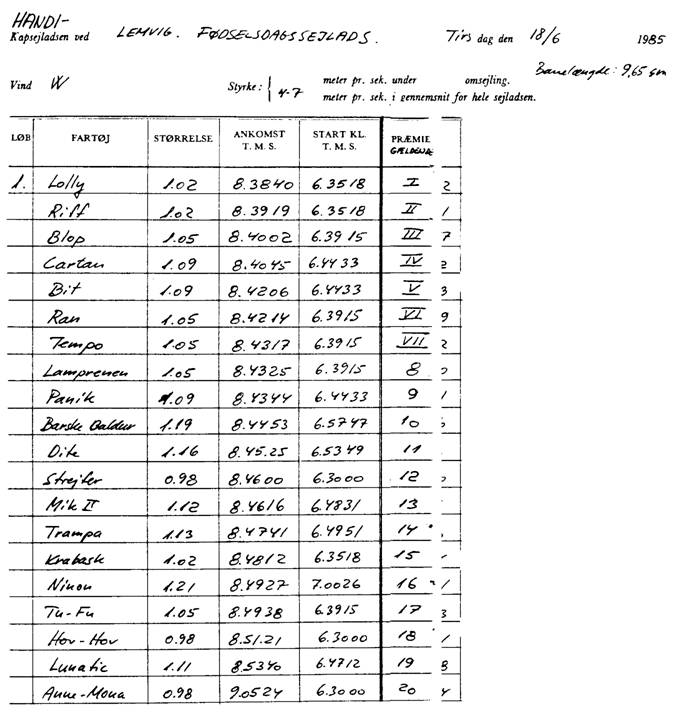 HANDI-
Kapsejladsen ved LEMVIG. FØDSELSDAGSSEJLADS. Tirs dag den 18/6 1985
Banelængde: 9,65 sm
Vind W Styrke: { 4-7 meter pr. sek. under omsejling.
meter pr. sek. i gennemsnit for hele sejladsen.
LØB FARTØJ STØRRELSE ANKOMST T. M. S. START KL. T. M. S. PRÆMIE
1. Lolly 1.02 8.3840 6.3518 I 2
Riff 1.02 8.3919 6.3518 II 1
Blop 1.05 8.4002 6.3915 III 7
Cartan 1.09 8.4045 6.4433 IV 2
Bit 1.09 8.4206 6.4433 V 3
Ran 1.05 8.4214 6.3915 VI 9
Tempo 1.05 8.4317 6.3915 VII 2
Lamprenen 1.05 8.4325 6.3915 8
Panik 1.09 8.4344 6.4433 9 1
Barske Baldur 1.19 8.4453 6.5747 10
Dite 1.16 8.45.25 6.5349 11
Strejfer 0.98 8.4600 6.3000 12
Mik II 1.12 8.4616 6.4831 13
Trampa 1.13 8.4741 6.4951 14
Krabask 1.02 8.4812 6.3518 15
Ninon 1.21 8.4927 7.0026 16 1
Tu-Fu 1.05 8.4938 6.3915 17 3
Hov-Hov 0.98 8.51.21 6.3000 18 1
Lunatic 1.11 8.5340 6.4712 19 8
Anne-Mona 0.98 9.0524 6.3000 20 4